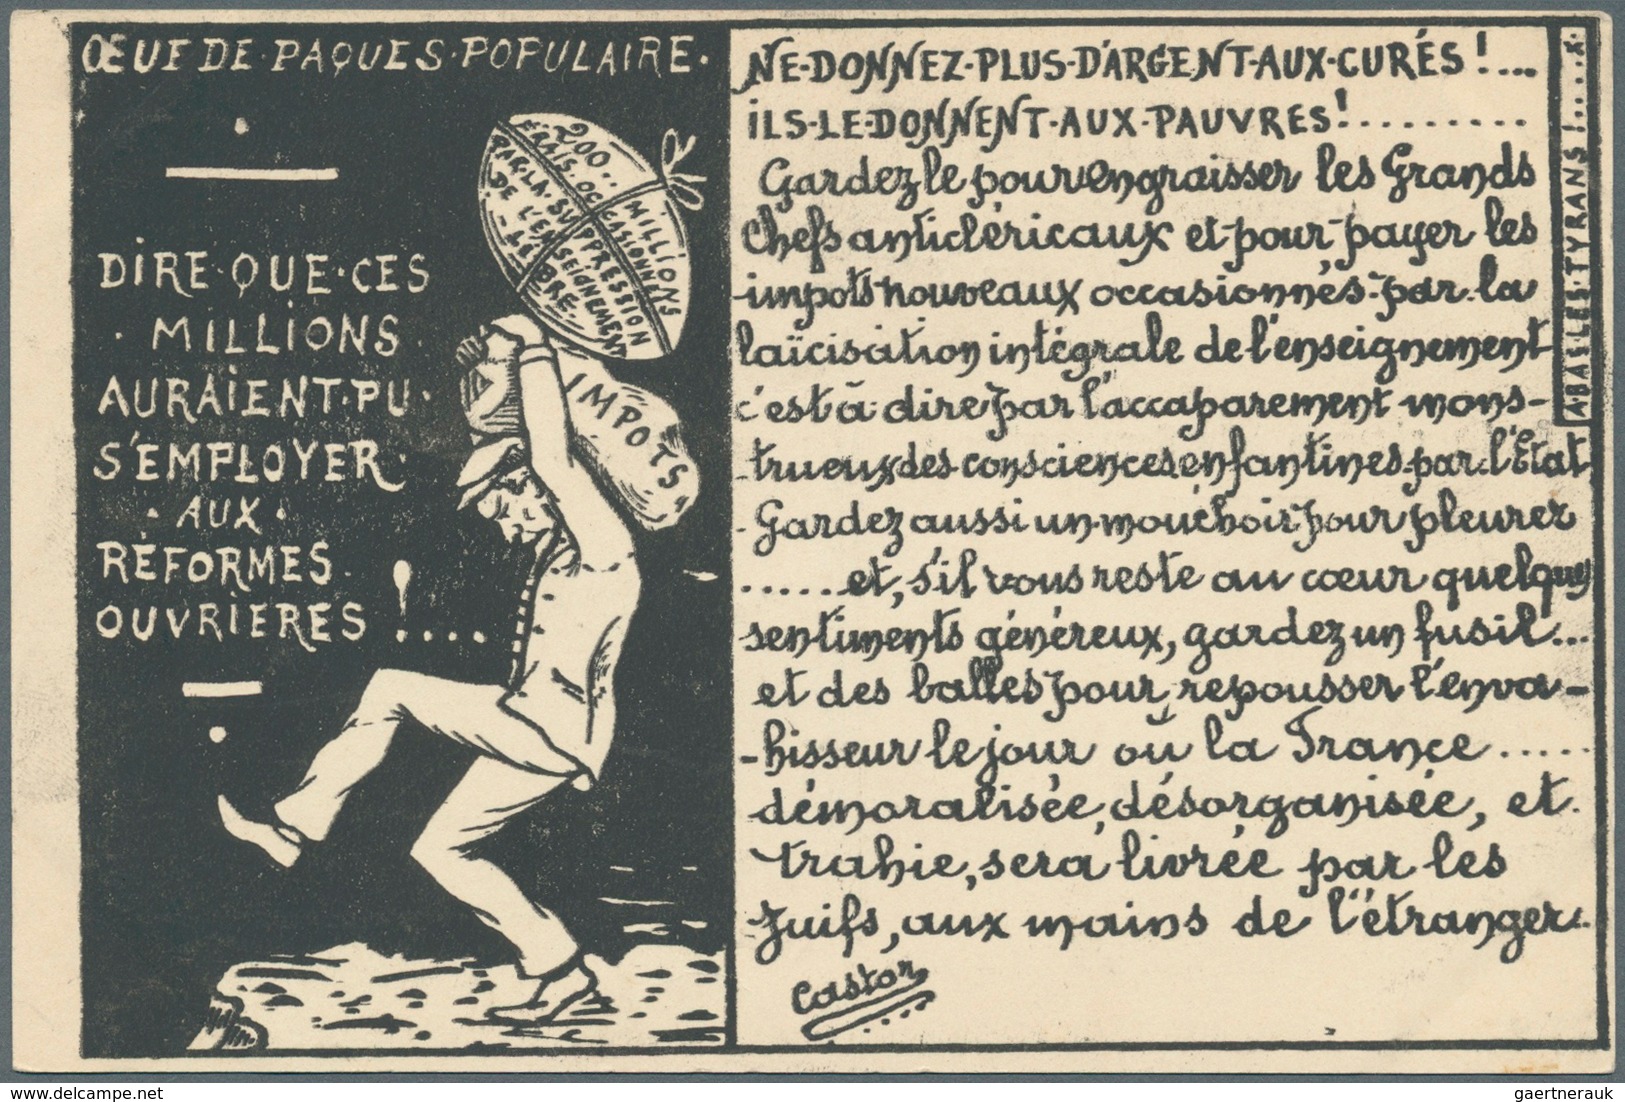 ŒUF DE·PAQUES·POPULAIRE.
200.. MILLIONS
FRAIS. OCCASIONNÉS
PAR·LA·SUPPRESSION
DE L'ENSEIGNEMENT
-LIBRE-
IMPOTS
DIRE·QUE·CES
· MILLIONS ·
AURAIENT·PU·
S'EMPLOYER·
· AUX ·
RÉFORMES.
OUVRIERES !....
NE·DONNEZ·PLUS·D'ARGENT·AUX·CURÉS !...
ILS·LE·DONNENT·AUX·PAUVRES!.........
Gardez le pour engraisser les Grands
Chefs anticléricaux et pour payer les
impots nouveaux occasionnés par la
laïcisation intégrale de l'enseignement
c'est à dire par l'accaparement mons-
trueux des consciences enfantines par l'Etat
Gardez aussi un mouchoir pour pleurer
......et, s'il vous reste au cœur quelques
sentiments généreux, gardez un fusil...
et des balles pour repousser l'enva-
-hisseur le jour où la France .....
démoralisée, désorganisée, et
trahie, sera livrée par les
Juifs, aux mains de l'étranger..
Castor
A·BAS·LES·TYRANS !....X.
gaertnerauk